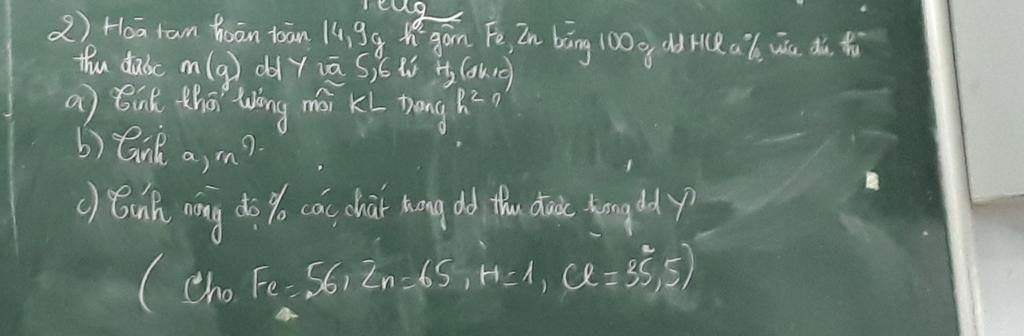 2) Hoà tan hoàn toàn 14,9g h² gồm Fe, Zn bằng 100g dd HCl a% vừa đủ thì
thu được m(g) dd Y và 5,6 lít H₂ (đktc)
a) Tính khối lượng mỗi KL trong h²?
b) Tính a, m?
c) Tính nồng độ % các chất trong dd thu được trong dd Y?
( Cho Fe = 56, Zn = 65, H = 1, Cl = 35,5)